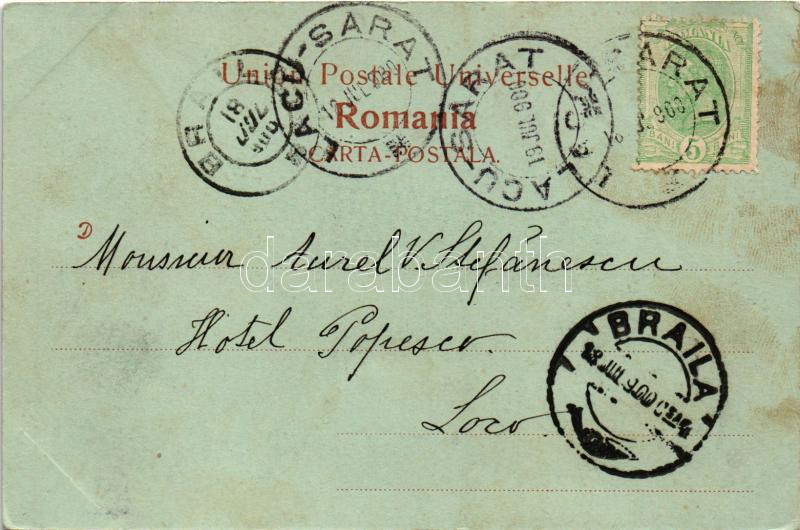 Union Postale Universelle
Romania
CARTA-POSTALA.
BRAILA
18 JUL 900
LACU-SARAT
12 JUL 900
LACU-SARAT
19 JUL 900
LACU SARAT
900
5
BANI
D
Monsieur Aurel V. Stefănescu
Hotel Popesco.
Loco.
BRAILA
18 JUL 900
darabanth